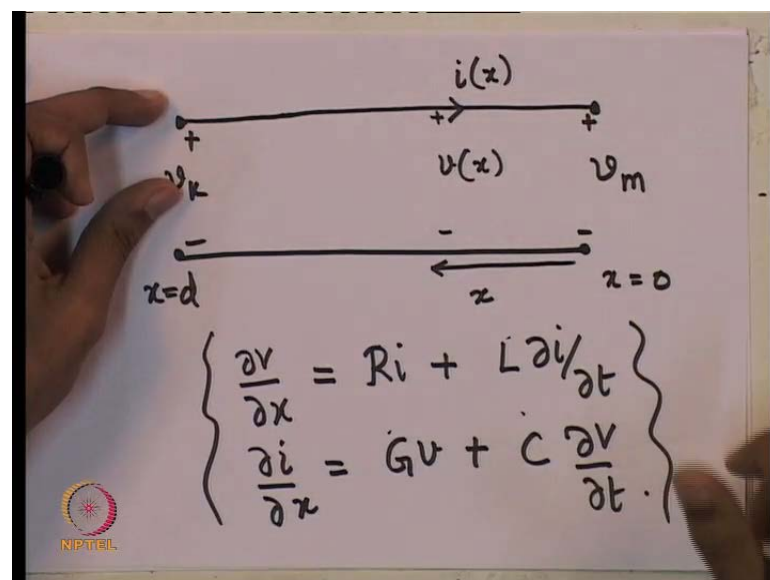 i(x)
+ + +
v_k v(x) v_m
- - -
x=d x x=0
∂v/∂x = Ri + L ∂i/∂t
∂i/∂x = Gv + C ∂v/∂t.
NPTEL